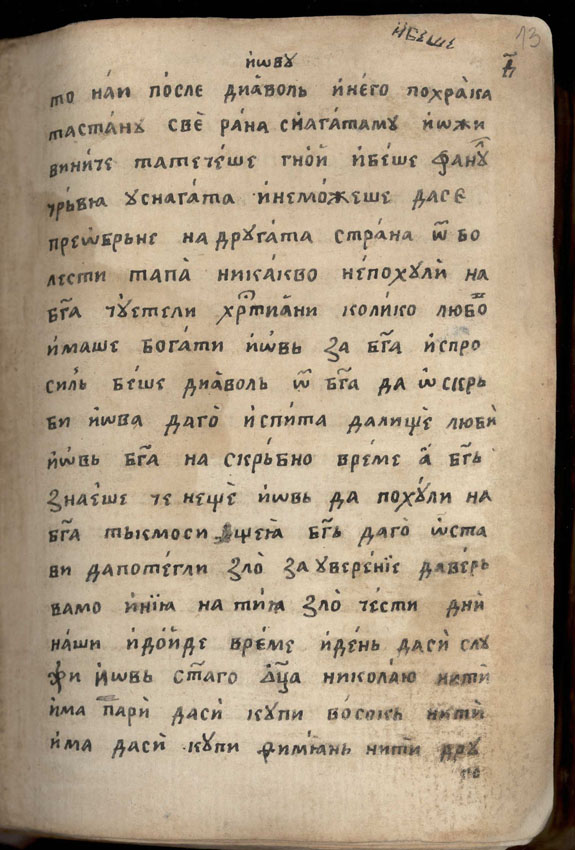 и҆беше 13
и҆ѡву
то на́и по́сле дїа́воль и҆не́го похра́ка
тастанꙋ̀ све̏ ра́на снага́таму и҆ѡжи
вини́те татече́ше гно́й и҆бе́ше фанꙋ̑
чръ́вїа уснага́та и҆немо́жеше дасе
преѡ҆брьне надруга́та страна ѿ бо
лести тапа̀ ника́кво непохꙋлѝ на
бг҃а чꙋетели хр҃тїа́ни коли́ко любо̑
и҆маше бога́ти и҆ѡ́вь за бг҃а и҆спро
силь бе́ше дїа́воль ѿ бг҃а да ѡ҆скрь
би и҆ѡва даго̀ и҆спи́та далищѐ любѝ
и҆ѡ́вь бг҃а на скръ́бно време а҆ бг҃ь
зна́еше че нещѐ и҆ѡвь да поху́ли на
бг҃а тькмоси щеїа̀ бг҃ь даго̀ ѡ҆ста
ви дапоте́гли зло̀ заувере́нїе даве́рь
вамо и҆нїа на тиїа зло̀ че́сти днѝ
на́ши и҆до́йде време и҆де́нь дасѝ слу
жи и҆ѡвь ст҃аго ѻц҃а никола́ю нитѝ
и҆ма парѝ дасѝ купи во́сокь нитѝ
и҆ма дасѝ купи ѳимїа́нь нитѝ дру
го